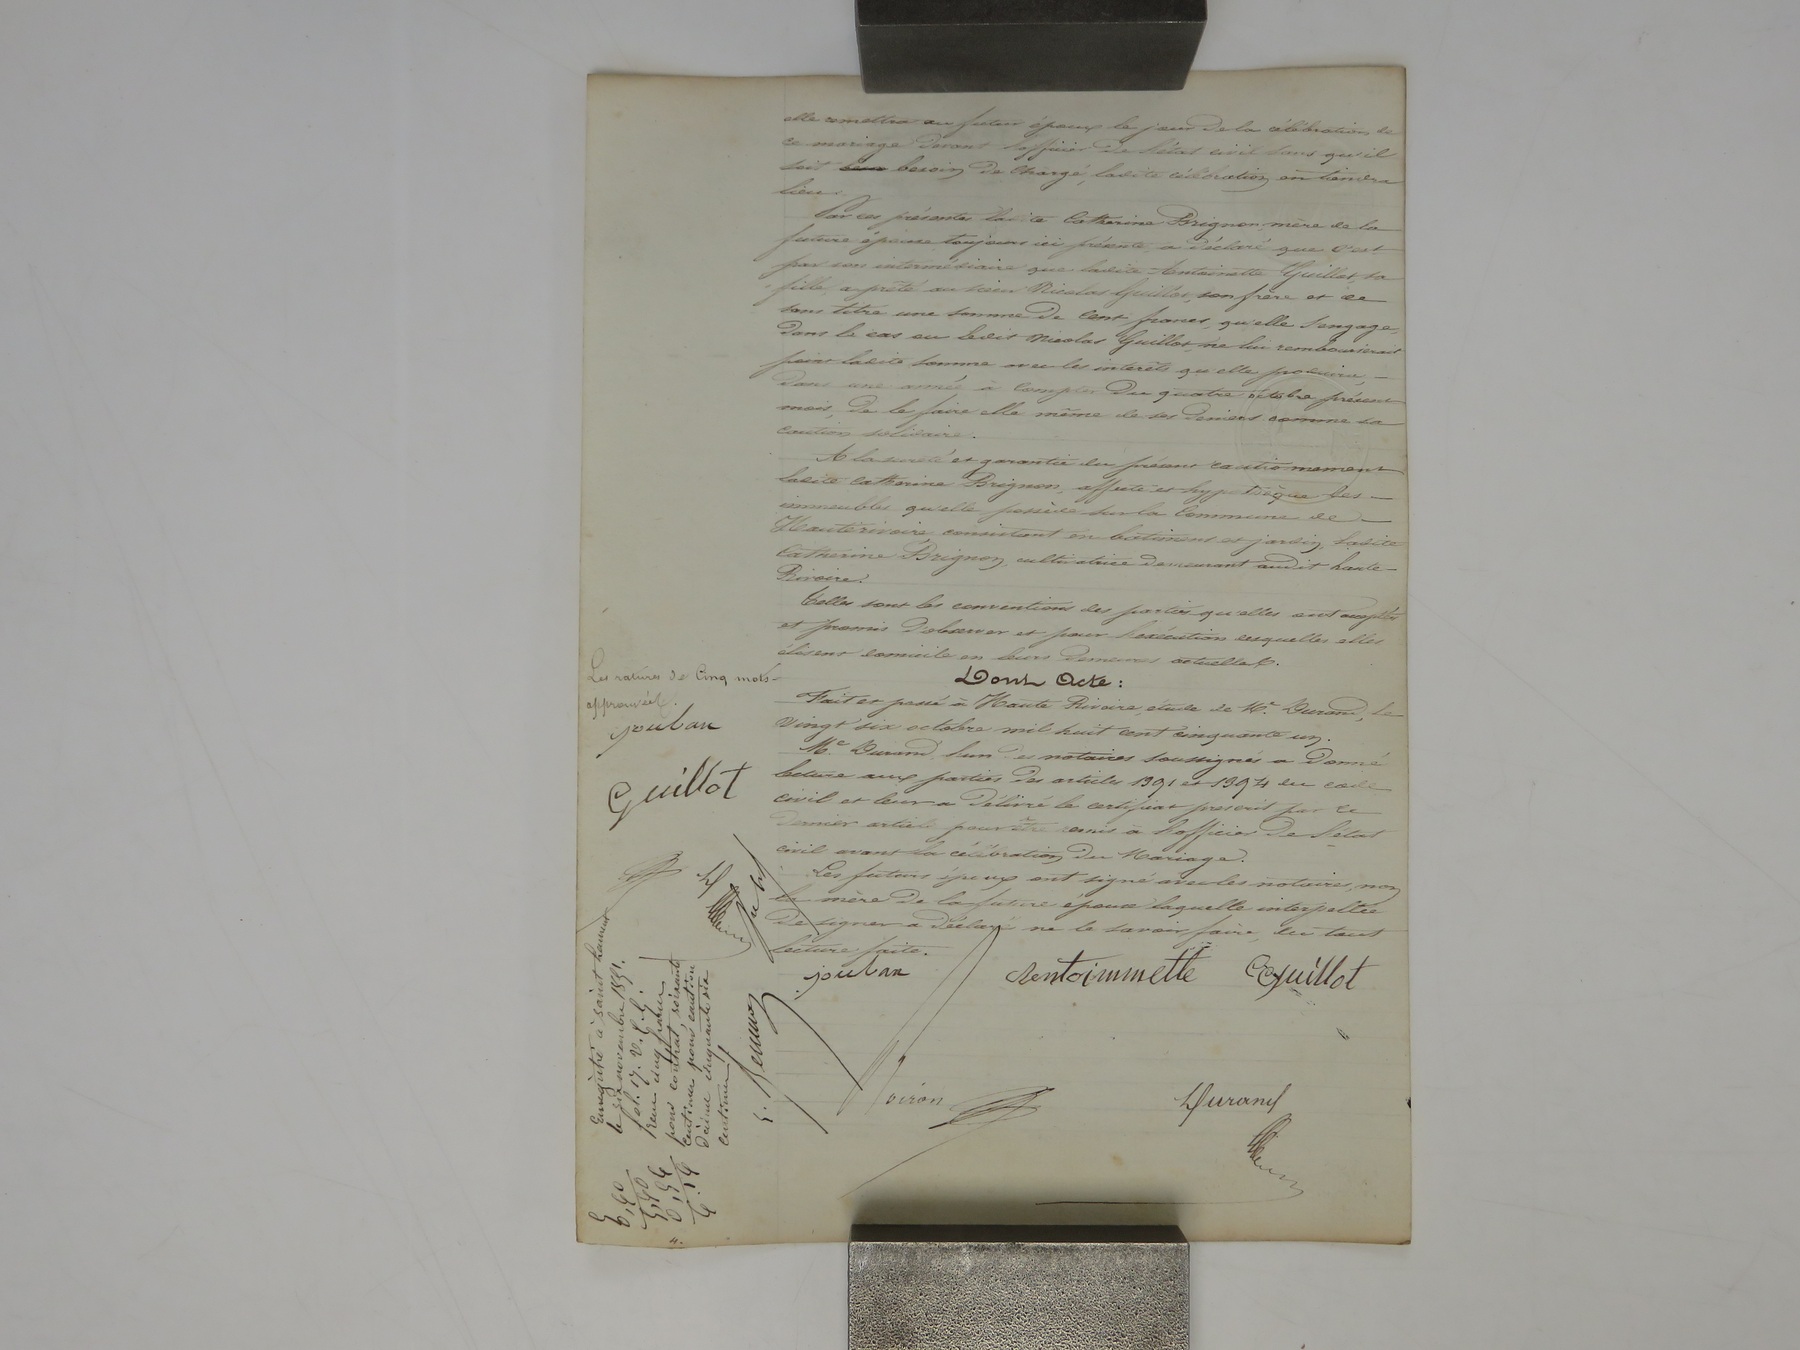 elle remettra au futur époux le jour de la célébration de
ce mariage devant l'officier de l'état civil sans qu'il
soit besoin de charge, ladite célébration en tiendra
lieu.
Par ces présentes ladite Catherine Brignon mère de la
future épouse toujours ici présente, a déclaré que c'est
par son intermédiaire que ladite Antoinette Guillot, sa
fille, a prêté au sieur Nicolas Guillot, son frère et ce
sans titre une somme de cent francs, qu'elle s'engage,
dans le cas ou ledit Nicolas Guillot, ne lui rembourserait
point ladite somme avec les intérêts qu'elle produira, —
dans une année à compter du quatre octobre présent
mois, de le faire elle même de ses deniers comme sa
caution solidaire.
A la sureté et garantie du présent cautionnement
ladite Catherine Brignon, affecte et hypothèque les —
immeubles qu'elle possède sur la Commune de —
Hauterivoire consistant en bâtiment et jardin, ladite
Catherine Brignon, cultivatrice demeurant audit haute-
Rivoire.
Telles sont les conventions des parties qu'elles ont acceptées
et promis d'observer et pour l'exécution desquelles elles
élisent domicile en leurs demeures actuelles.
Dont Acte :
Fait et passé à Haute Rivoire, étude de Me. Durand, le
vingt six octobre mil huit cent cinquante un.
Me. Durand, l'un des notaires soussignés a donné
lecture aux parties des articles 1391 et 1394 du code
civil et leur a délivré le certificat prescrit par ce
dernier article pour être remis à l'officier de l'état
civil avant la célébration du Mariage.
Les futurs époux ont signé avec les notaires, non
la mère de la future épouse laquelle interpellée
de signer a déclaré ne le savoir faire, du tout
lecture faite.
jouban Antoinmette Guillot
Noiron Durand
Les ratures de Cinq mots
approuvées.
jouban
Guillot
Enregistré à saint
le six novembre 1851.
fol. 17. V. C.
Reçu cinq francs
pour contrat soixante
centimes pour caution
décime cinquante six
centimes